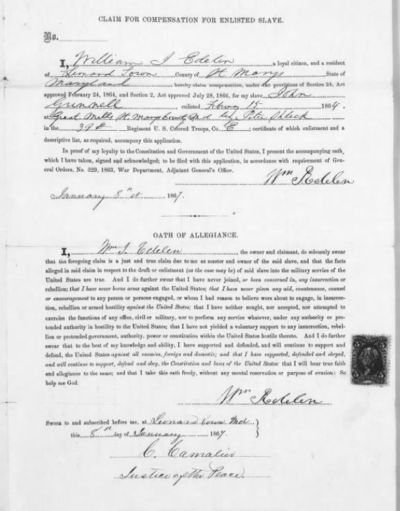 CLAIM FOR COMPENSATION FOR ENLISTED SLAVE.
No.
I, William J Edelin a loyal citizen, and a resident
of Leonard Town County of St Marys State of
Maryland hereby claims compensation, under the provisions of Section 24, Act
approved February 24, 1864, and Section 2, Act approved July 28, 1866, for my slave, John
Gunnell enlisted Febuy 15 1864,
at Great Mills St Marys County Md by
in the 39th Regiment U. S. Colored Troops, Co. E; certificate of which enlistment and a
descriptive list, as required, accompany this application.
In proof of my loyalty to the Constitution and Government of the United States, I present the accompanying oath,
which I have taken, signed and acknowledged; to be filed with this application, in accordance with requirement of Gen-
eral Orders, No. 329, 1863, War Department, Adjutant General's Office.
Wm J Edelin
January 8th 1867.
OATH OF ALLEGIANCE.
I, Wm J. Edelin, the owner and claimant, do solemnly swear
that the foregoing claim is a just and true claim due to me as master and owner of the said slave, and that the facts
alleged in said claim in respect to the draft or enlistment (as the case may be) of said slave into the military service of the
United States are true. And I do further swear that I have never joined, or been concerned in, any insurrection or
rebellion; that I have never borne arms against the United States; that I have never given any aid, countenance, counsel
or encouragement to any person or persons engaged, or whom I had reason to believe were about to engage, in insurrec-
tion, rebellion or armed hostility against the United States; that I have neither sought, nor accepted, nor attempted to
exercise the functions of any office, civil or military, nor to perform any service whatever, under any authority or pre-
tended authority in hostility to the United States; that I have not yielded a voluntary support to any insurrection, rebel-
lion or pretended government, authority, power or constitution within the United States hostile thereto. And I do further
swear that to the best of my knowledge and ability, I have supported and defended, and will continue to support and
defend, the United States against all enemies, foreign and domestic; and that I have supported, defended and obeyed,
and will continue to support, defend and obey, the Constitution and laws of the United States; that I will bear true faith
and allegiance to the same; and that I take this oath freely, without any mental reservation or purpose of evasion: So
help me God.
Wm J Edelin
Sworn to and subscribed before me, at Leonard Town Md.
this 8th day of January 1867.
C. Camalier
Justice of the Peace